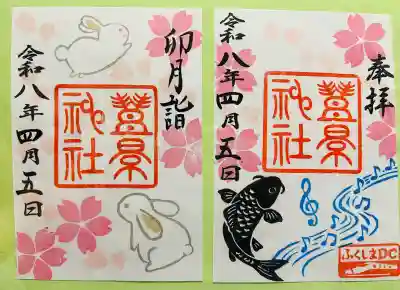 卯月詣
豊景
神社
令和八年四月五日
奉拝
豊景
神社
令和八年四月五日
ふくしまDC